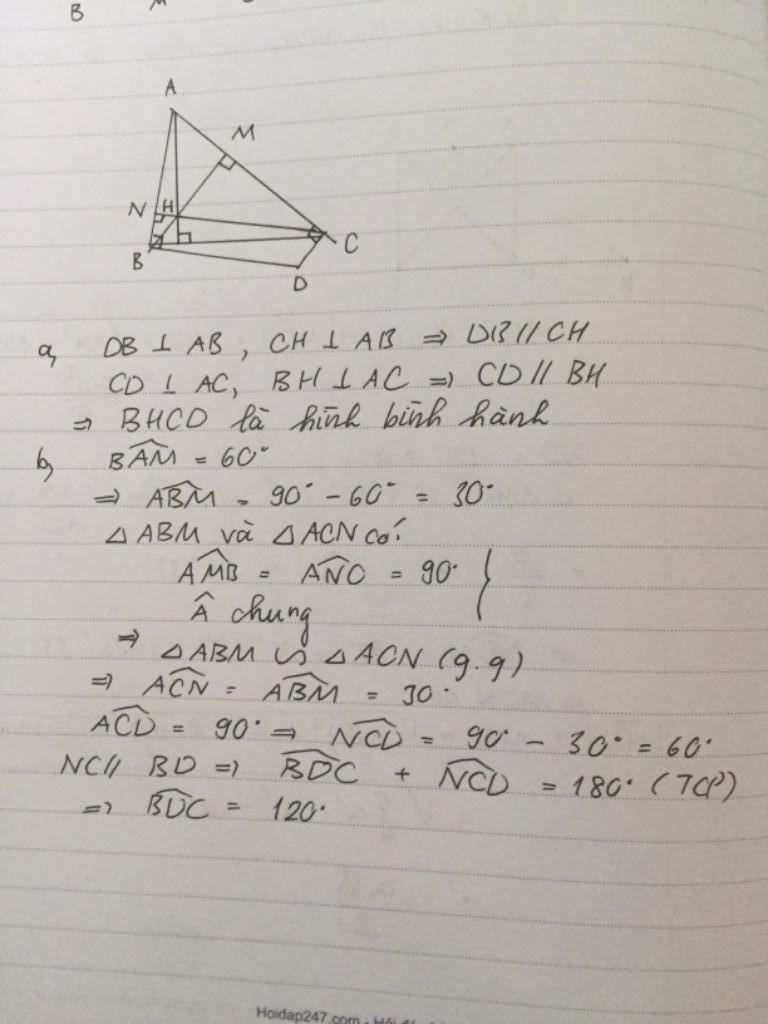 B M
A
M
N H
B
C
D
a, DB ⊥ AB, CH ⊥ AB ⇒ DB // CH
CD ⊥ AC, BH ⊥ AC ⇒ CD // BH
⇒ BHCD là hình bình hành
b, BÂM = 60°
⇒ ABM̂ = 90° - 60° = 30°
△ABM và △ACN có:
AMB̂ = ANĈ = 90° }
Â chung
⇒ △ABM ∽ △ACN (g.g)
⇒ ACN̂ = ABM̂ = 30°
ACD̂ = 90° ⇒ NCD̂ = 90° - 30° = 60°
NC // BD ⇒ BDĈ + NCD̂ = 180° (TCP)
⇒ BDĈ = 120°
Hoidap247.com - Hỏi